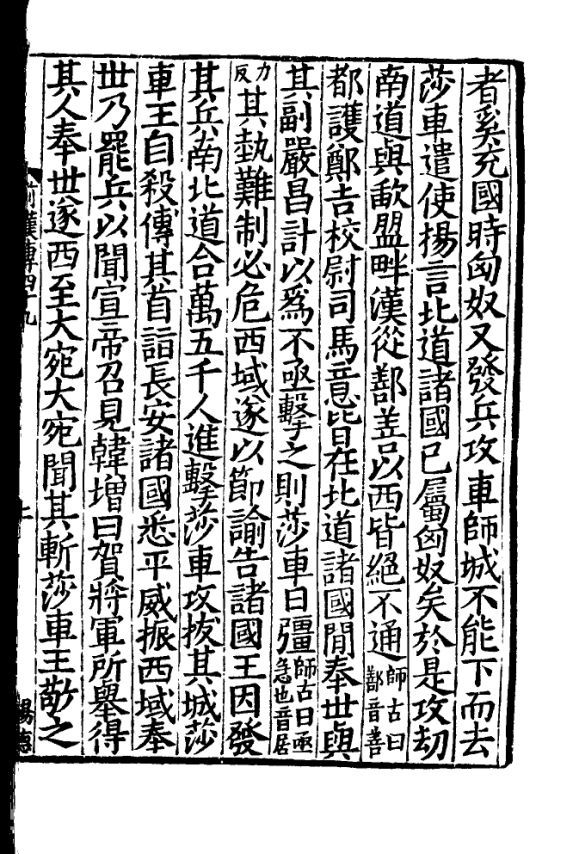 者奚充國時匈奴又發兵攻車師城不能下而去
莎車遣使揚言北道諸國已屬匈奴矣於是攻劫
南道與歃盟畔漢從鄯善以西皆絕不通師古曰鄯音善
都護鄭吉校尉司馬意皆在北道諸國閒奉世與
其副嚴昌計以爲不亟擊之則莎車日彊師古曰亟急也音居
力反其埶難制必危西域遂以節諭告諸國王因發
其兵南北道合萬五千人進擊莎車攻拔其城莎
車王自殺傳其首詣長安諸國悉平威振西域奉
世乃罷兵以聞宣帝召見韓增曰賀將軍所舉得
其人奉世遂西至大宛大宛聞其斬莎車王敬之
前漢傳四十九